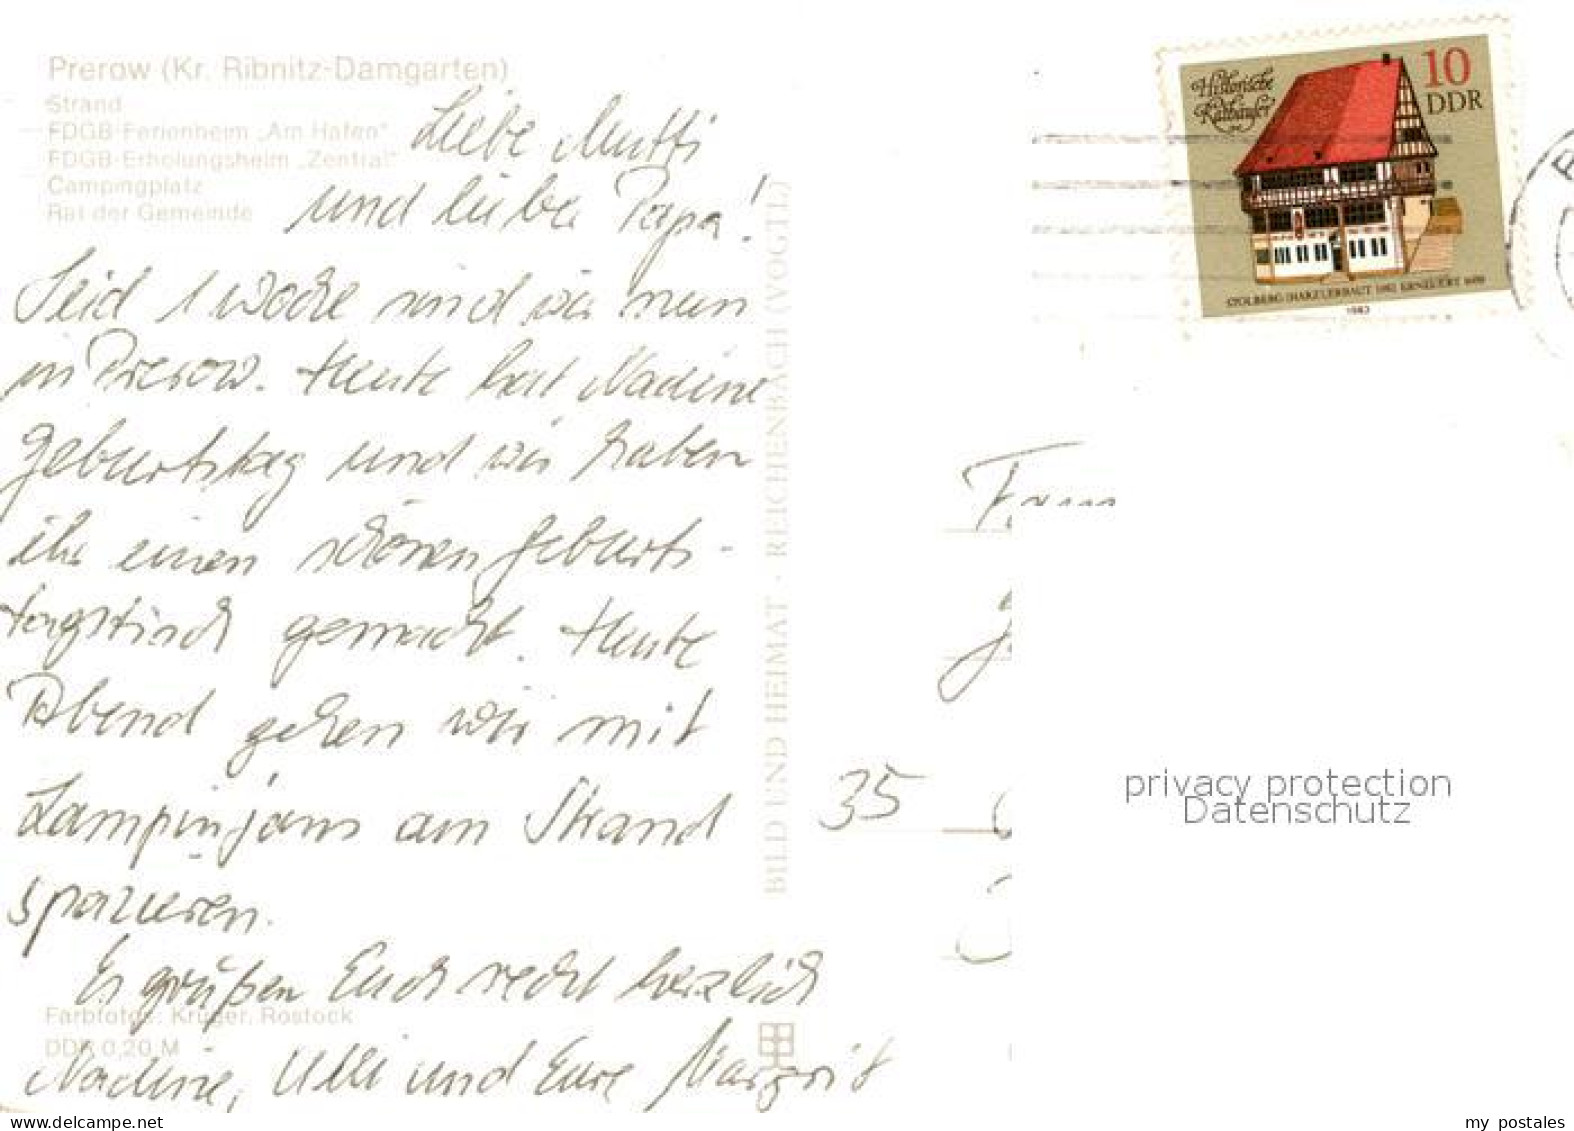 Prerow (Kr. Ribnitz-Damgarten)
Strand
FDGB-Ferienheim „Am Hafen"
FDGB-Erholungsheim „Zentral"
Campingplatz
Rat der Gemeinde
Liebe Mutti
und lieber Papa!
Seid 1 Woche sind wir nun
in Prerow. Heute hat Nadine
Geburtstag und wir haben
ihr einen schönen Geburts-
tagstisch gemacht. Heute
Abend gehen wir mit
Lampinjons am Strand
spazieren.
Es grüßen Euch recht herzlich
Nadine, Ulli und Eure Margrit
Farbfotos: Krüger, Rostock
DDR 0,20 M
BILD UND HEIMAT · REICHENBACH (VOGTL)
Historische
Rathäuser
10
DDR
STOLBERG (HARZ) ERBAUT 1482 ERNEUERT 1600
1983
35
privacy protection
Datenschutz
delcampe.net
my_postales